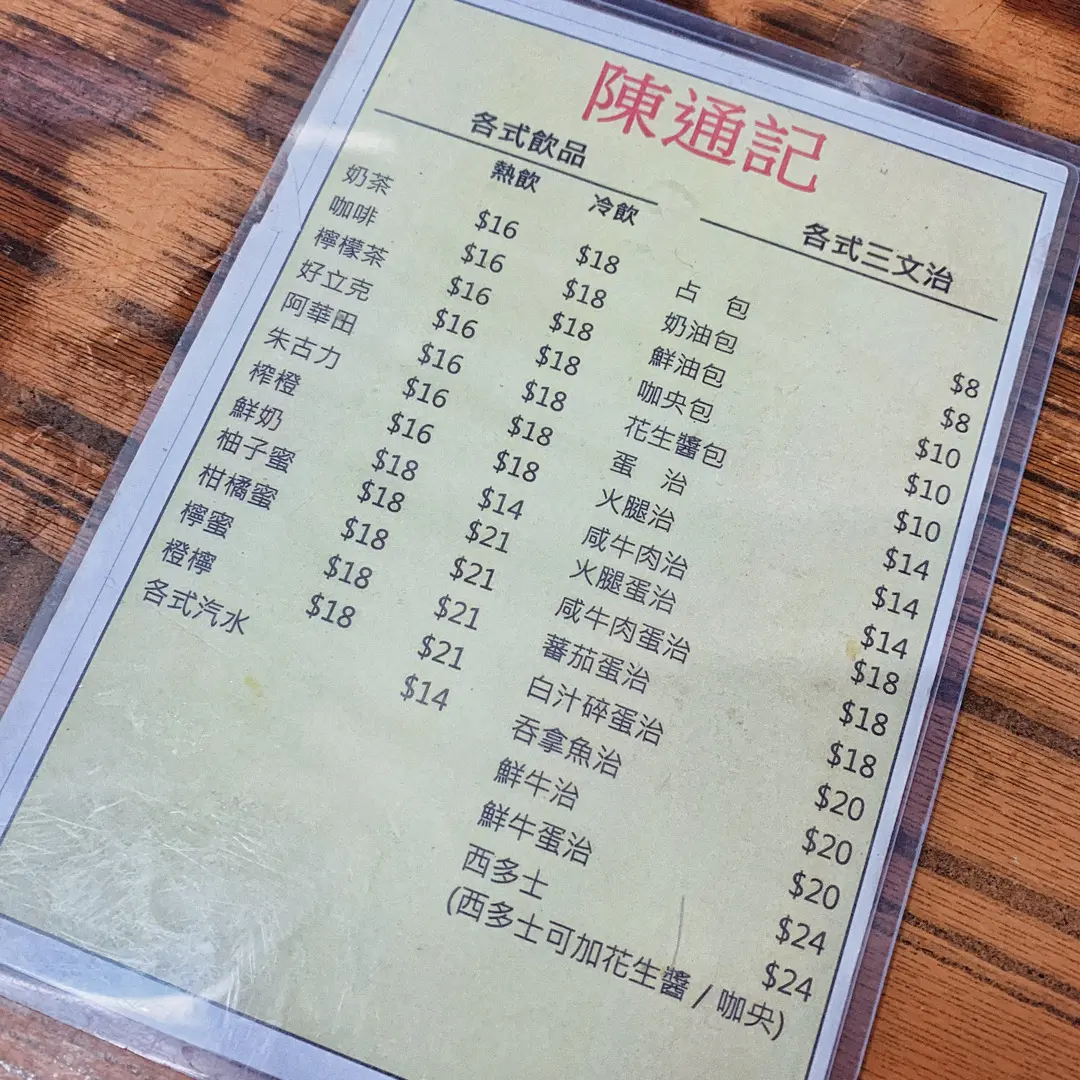 陳通記
各式飲品
熱飲 冷飲
奶茶 $16 $18
咖啡 $16 $18
檸檬茶 $16 $18
好立克 $16 $18
阿華田 $16 $18
朱古力 $16 $18
榨橙 $16 $18
鮮奶 $18 $14
柚子蜜 $18 $21
柑橘蜜 $18 $21
檸蜜 $18 $21
橙檸 $18 $21
各式汽水 $14
各式三文治
占 包 $8
奶油包 $8
鮮油包 $10
咖央包 $10
花生醬包 $10
蛋 治 $14
火腿治 $14
咸牛肉治 $14
火腿蛋治 $18
咸牛肉蛋治 $18
蕃茄蛋治 $18
白汁碎蛋治 $20
吞拿魚治 $20
鮮牛治 $20
鮮牛蛋治 $24
西多士 $24
(西多士可加花生醬 / 咖央)